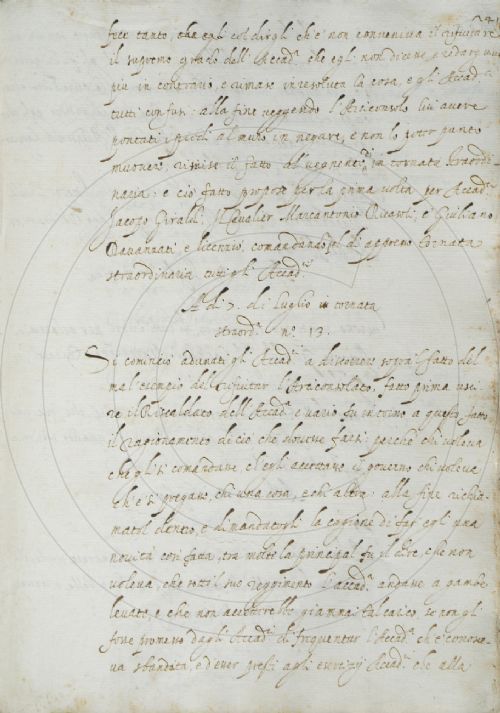 241
fece tanto, che egli col dirgli ch'e' non conveniva il rifiutare
il supremo grado dell'Accad.ª che egli non dicesse, e redasse mai
più in contrario, e rimase inresoluta la cosa, e gl'Accad.ci
tutti confusi: alla fine veggendo l'Arciconsolo lui avere
pontati i piedi al muro in negare, e non lo poter punto
muovere, rimise il fatto all'vegnente in tornata straordi-
naria: e ciò fatto propose per la prima volta per Accad.ci
Jacopo Giraldi, il Cavalier Marcantonio Ricasoli, e Giuliano
Davanzati e licenziò, comandando pel dì appresso tornata
straordinaria tutti gli Accad.ci
A dì 7. di Luglio in tornata
straord.ª n.º 13.
Si cominciò adunati gli Accad.ci a discorrere sopra il fatto del
mal'esempio del rifiutar l'Arciconsolato, fatto prima usci-
re il Riscaldato dell'Accad.ª e vario fu intorno a questo fatto
il ragionamento di ciò che dovesse farsi perché chi voleva
che gli si comandasse, ch'egli accettasse il governo chi voleva
ch'e' si pregasse, chi una cosa, e chi altra: alla fine richia-
matol dentro, e dimandatogli la cagione di far egli una
novità così fatta, tra molte la principal fu il dire, che non
voleva, che sotto il suo reggimento l'Accad.ª andasse a gambe
levate, e che non accetterebbe giammai tal carico, se non gli
fosse promesso dagli Accad.ci di frequentar l'Accad.ª ch'e' conosce-
va sbandata, e d'esser presti agli esercizj Accad.ci che alla